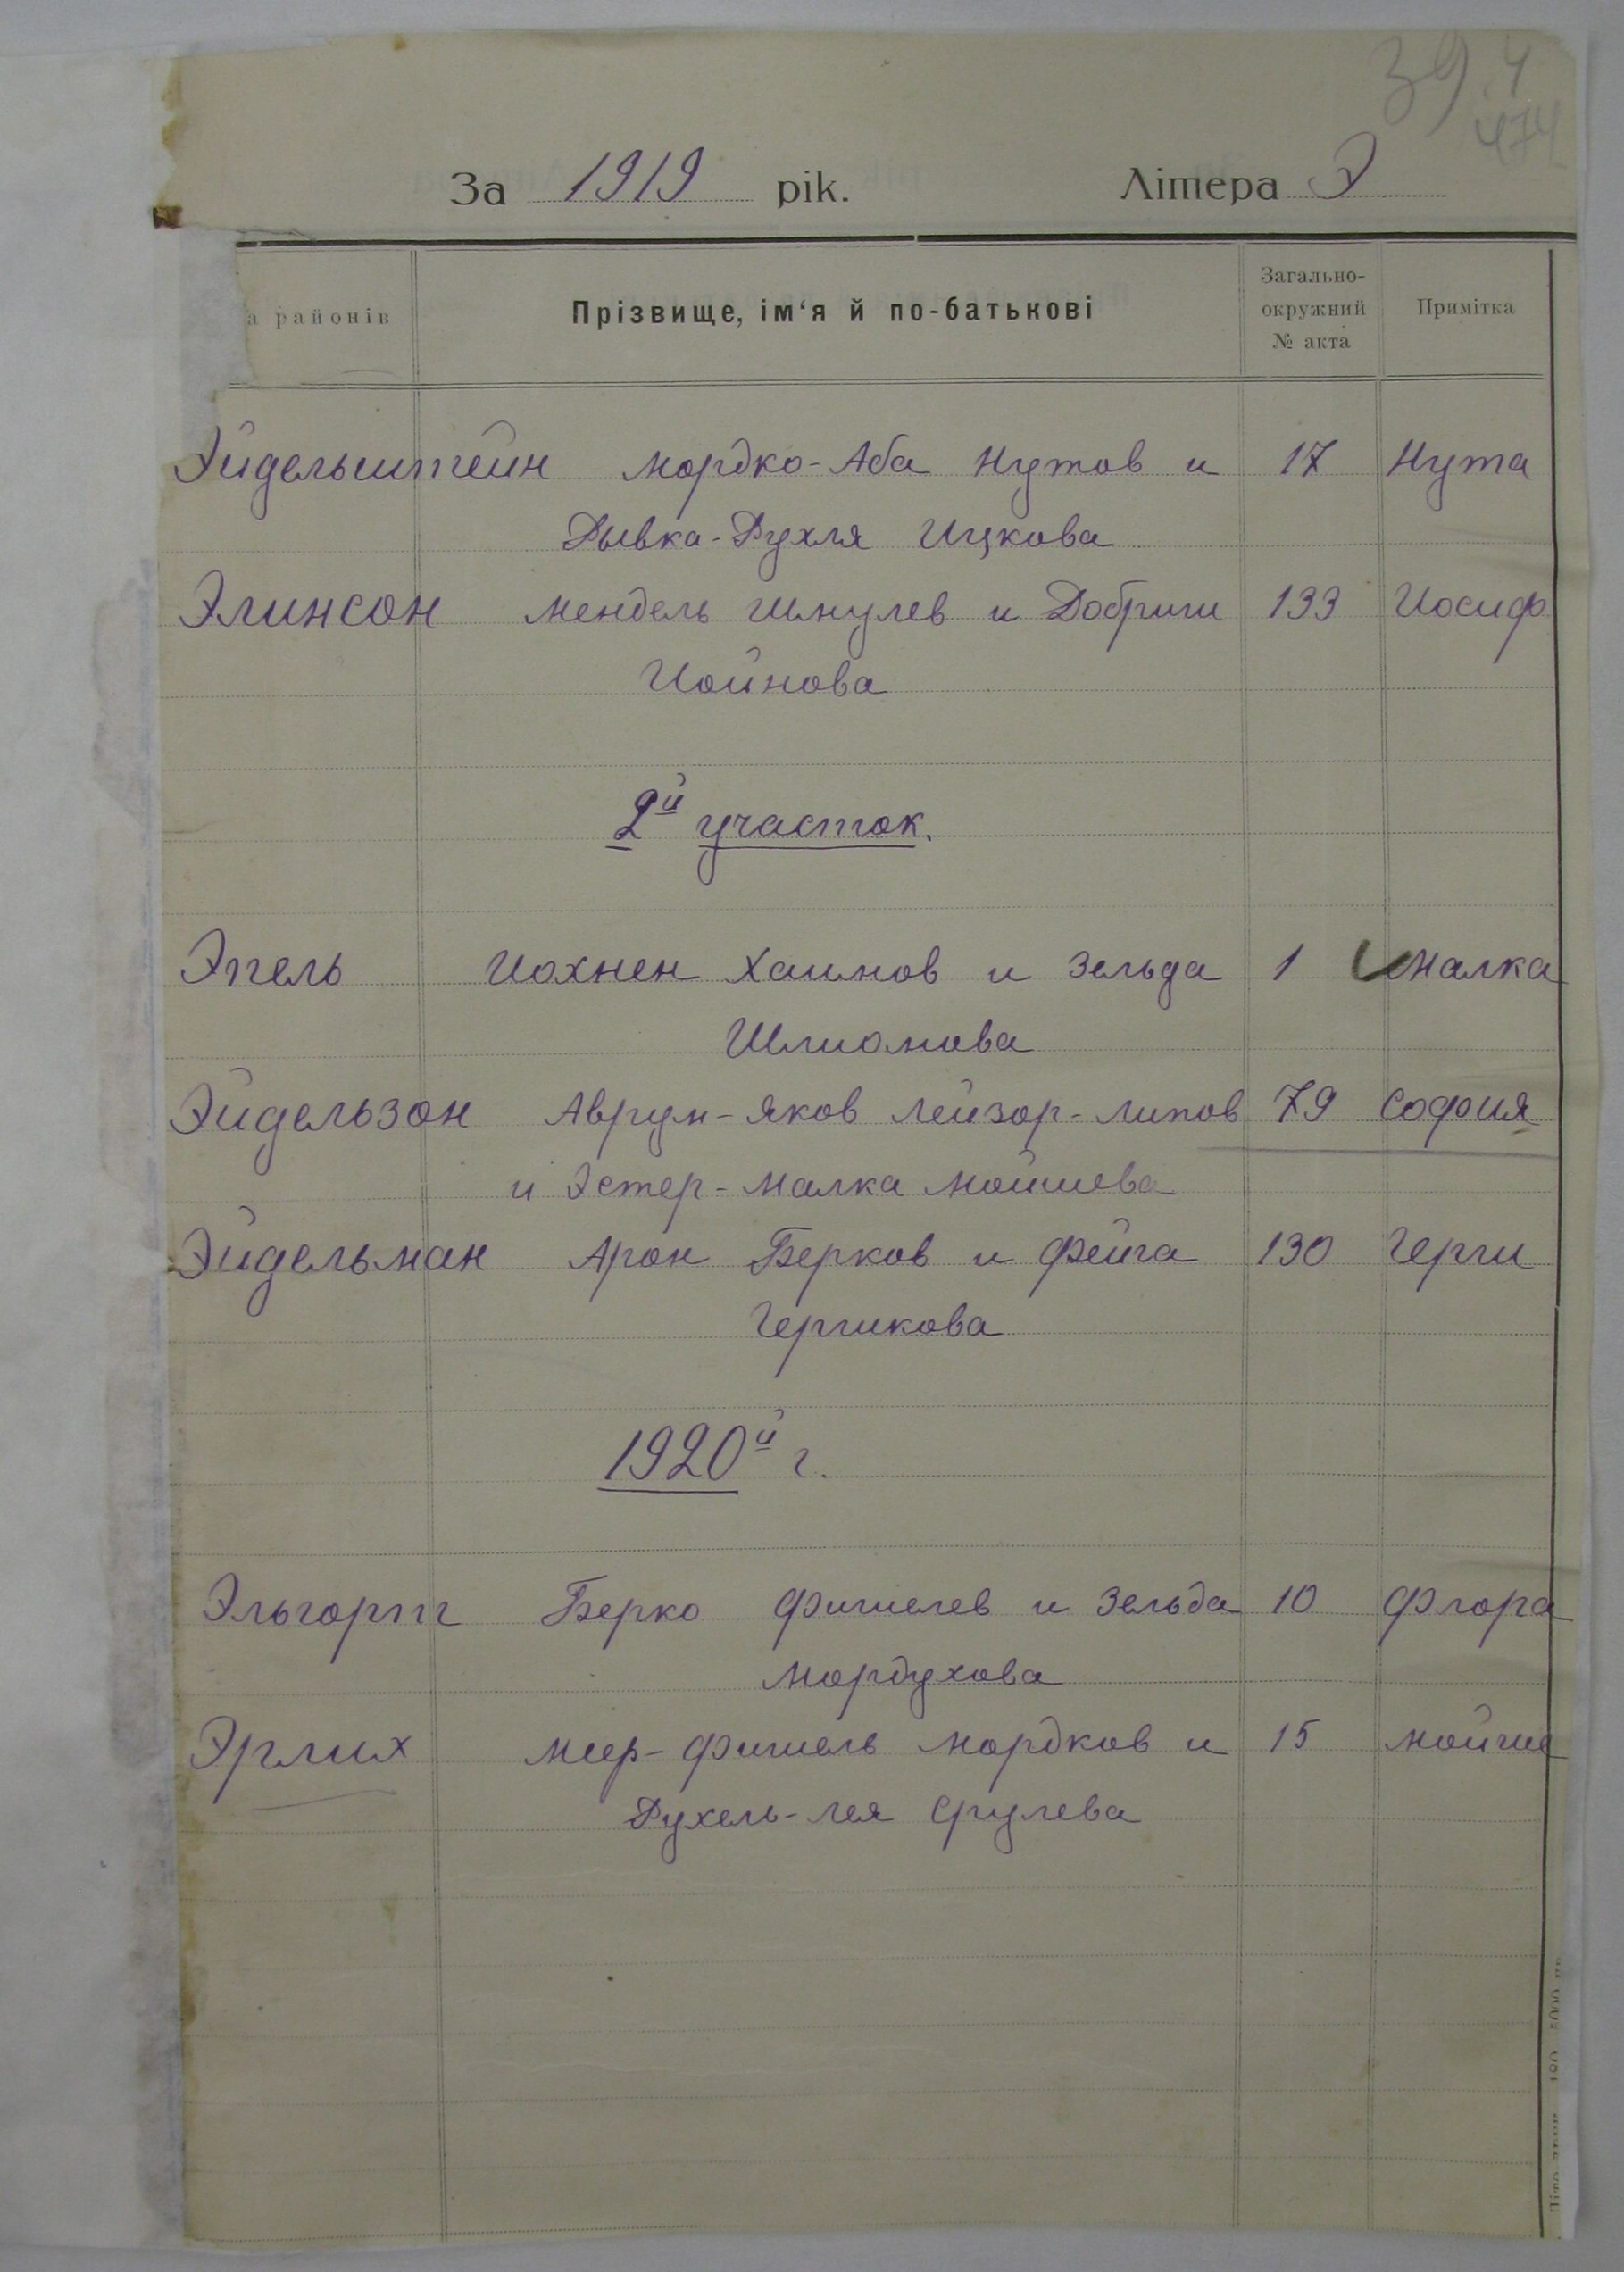 39 4
474
За 1919 рік. Літера Э
а районів Прізвище, ім‘я й по-батькові Загально-окружний № акта Примітка
Эйдельштейн Мордко-Аба Нутов и 17 Нута
Рывка-Рухля Ицкова
Элинсон Мендель Шмулев и Добриш 133 Иосиф
Иойнова
2й участок.
Эпель Иохнен Хаимов и Зельда 1 Малка
Шлиомова
Эйдельзон Аврум-Яков Лейзор-Липов 79 София
и Эстер-Малка Мойшева
Эйдельман Арон Берков и Фейга 130 Герш
Гершкова
1920й г.
Эльгорт Берко Фишелев и Зельда 10 Флора
Мордухова
Эрлих Меер-Фишель Мордков и 15 Мойше
Рухель-Лея Срулева